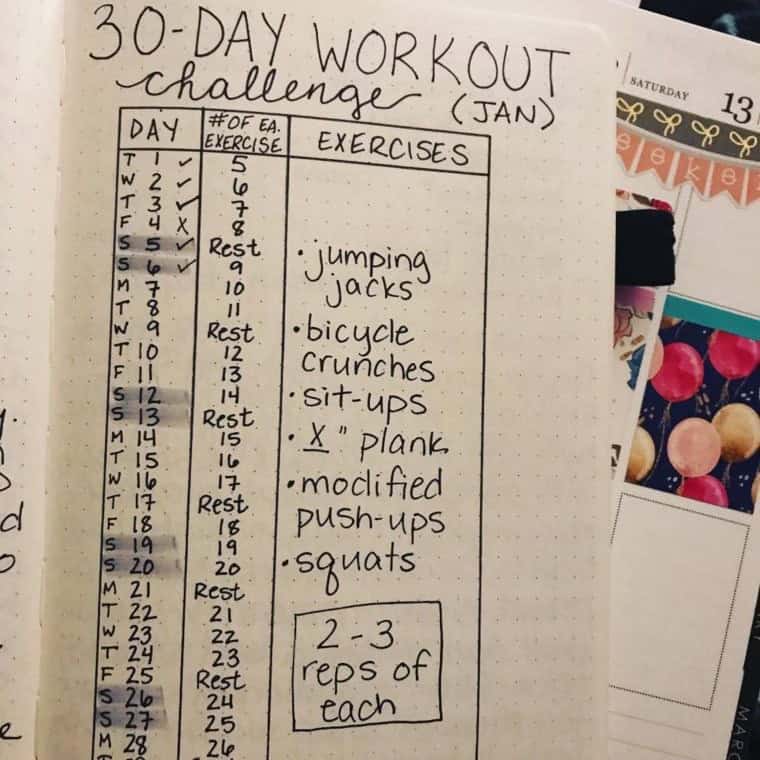 30-DAY WORKOUT
challenge (JAN)
DAY
# OF EA. EXERCISE
EXERCISES
T 1 ✓ 5
W 2 ✓ 6
T 3 ✓ 7
F 4 X 8
S 5 ✓ Rest
S 6 ✓ 9
M 7 10
T 8 11
W 9 Rest
T 10 12
F 11 13
S 12 14
S 13 Rest
M 14 15
T 15 16
W 16 17
T 17 Rest
F 18 18
S 19 19
S 20 20
M 21 Rest
T 22 21
W 23 22
T 24 23
F 25 Rest
S 26 24
S 27 25
M 28 26
• jumping
jacks
• bicycle
crunches
• sit-ups
• X " plank
• modified
push-ups
• squats
2-3
reps of
each
SATURDAY
13